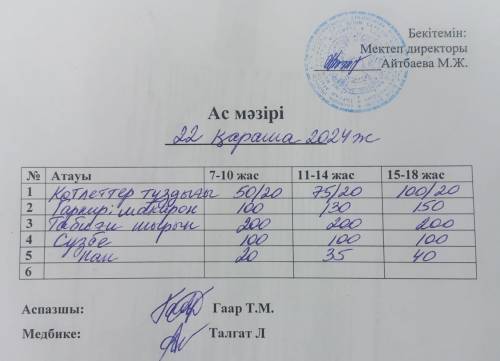 Бекітемін:
Мектеп директоры
Айтбаева М.Ж.
Ас мәзірі
22 қараша 2024ж
№ Атауы 7-10 жас 11-14 жас 15-18 жас
1 Котлеттер тұздығы 50/20 75/20 100/20
2 Гарнир: макарон 100 130 150
3 Табиғи шырын 200 200 200
4 Сүзбе 100 100 100
5 Нан 20 35 40
6
Аспазшы: Гаар Т.М.
Медбике: Талгат Л